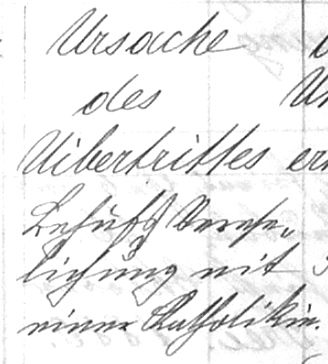 Ursache
des
Uibertrittes
Behufs Verehe-
lichung mit
einer Katholikin.